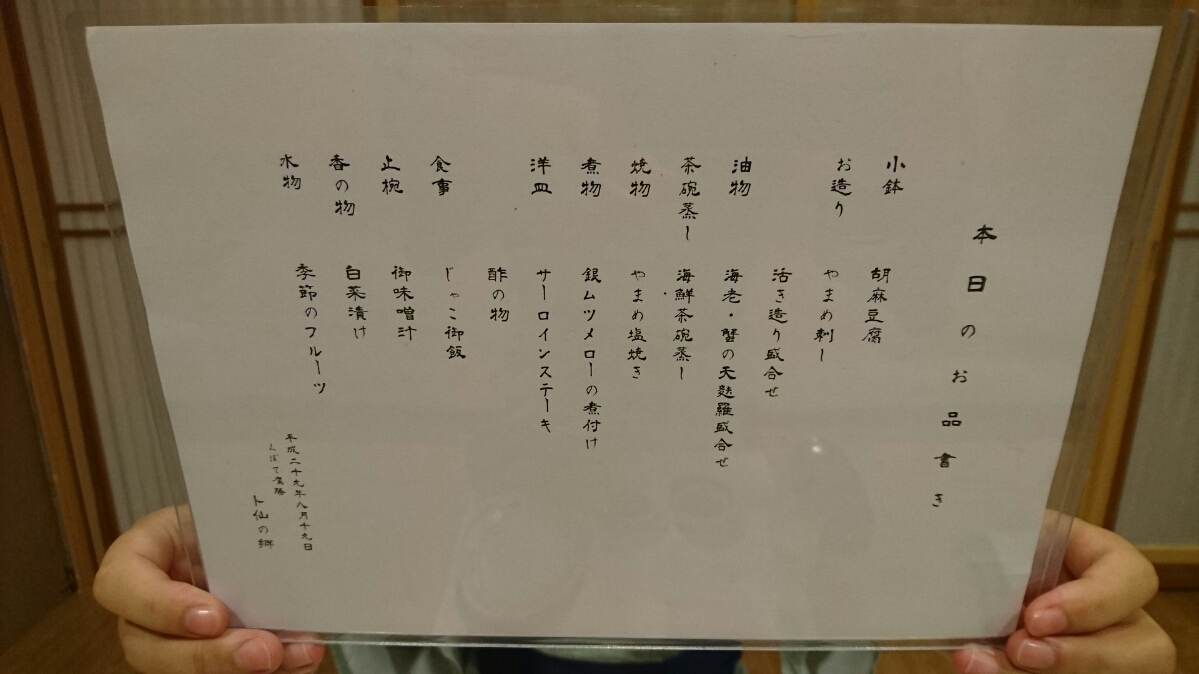 本日のお品書き
小鉢 胡麻豆腐
お造り やまめ刺し
活き造り盛合せ
油物 海老・蟹の天麩羅盛合せ
茶碗蒸し 海鮮茶碗蒸し
焼物 やまめ塩焼き
煮物 銀ムツメローの煮付け
洋皿 サーロインステーキ
酢の物
食事 じゃこ御飯
止椀 御味噌汁
香の物 白菜漬け
水物 季節のフルーツ
平成二十九年八月十九日
卜仙の郷